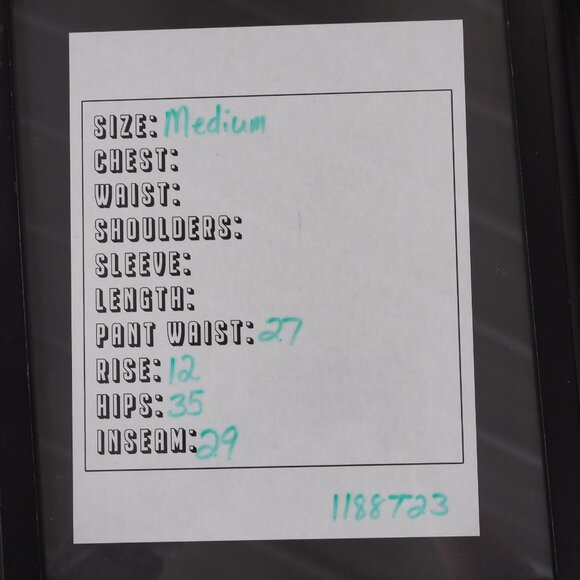 SIZE: Medium
CHEST:
WAIST:
SHOULDERS:
SLEEVE:
LENGTH:
PANT WAIST: 27
RISE: 12
HIPS: 35
INSEAM: 29
1188T23